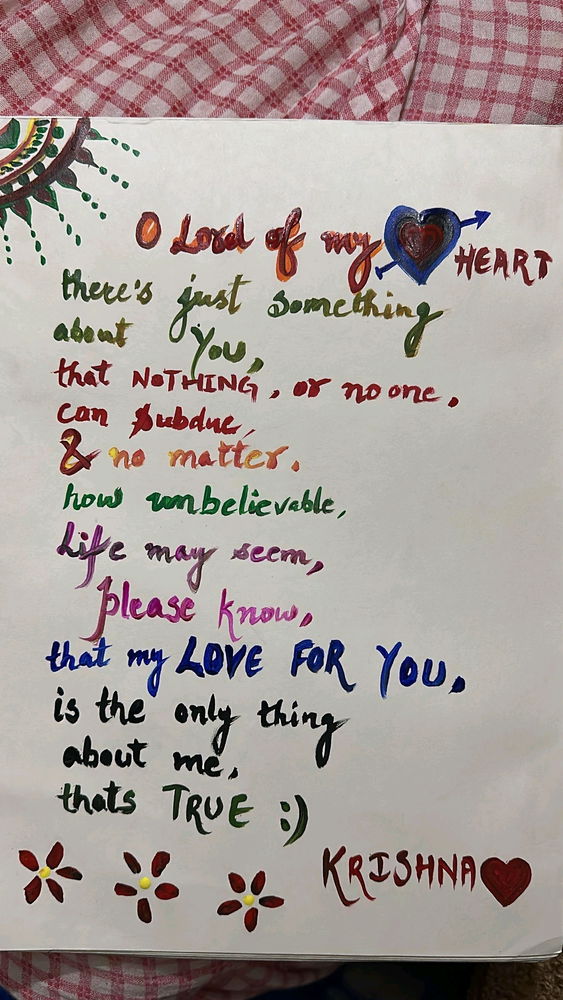 O Lord of my HEART
there's just something
about You,
that NOTHING, or no one,
can subdue,
& no matter,
how unbelievable,
Life may seem,
please know,
that my LOVE FOR YOU,
is the only thing
about me,
thats TRUE :)
KRISHNA